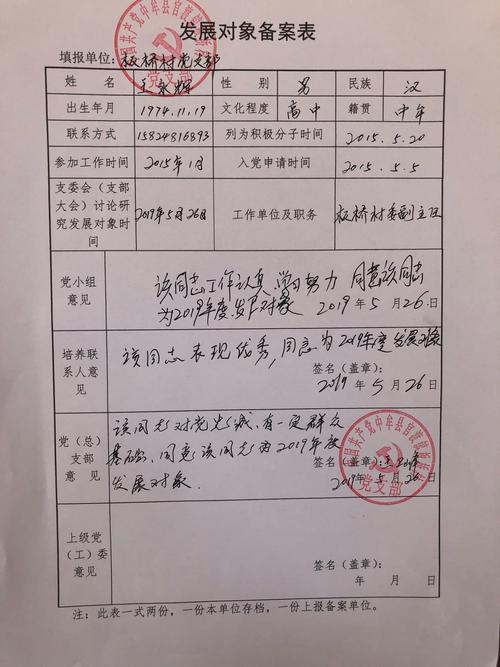 发展对象备案表
填报单位：板桥村党支部
姓 名 王永辉 性 别 男 民族 汉
出生年月 1974.11.19 文化程度 高中 籍贯 中牟
联系方式 15824816893 列为积极分子时间 2015.5.20
参加工作时间 2015年1月 入党申请时间 2015.5.5
支委会（支部
大会）讨论研
究发展对象时
间
2019年5月26日 工作单位及职务 板桥村委副主任
党小组
意见
该同志工作认真 学习努力 同意该同志
为2019年度发展对象 2019年5月26日
培养联
系人意
见
该同志表现优秀，同意为2019年度发展对象
签名（盖章）：
2019年5月26日
党（总）
支部
意见
该同志对党忠诚、有一定群众
基础、同意该同志为2019年度
发展对象.
签名（盖章）：
2019年5月26日
中国共产党中牟县官渡镇板桥村
党支部
上级党
（工）委
意见
签名（盖章）：
年 月 日
注：此表一式两份，一份本单位存档，一份上报备案单位。